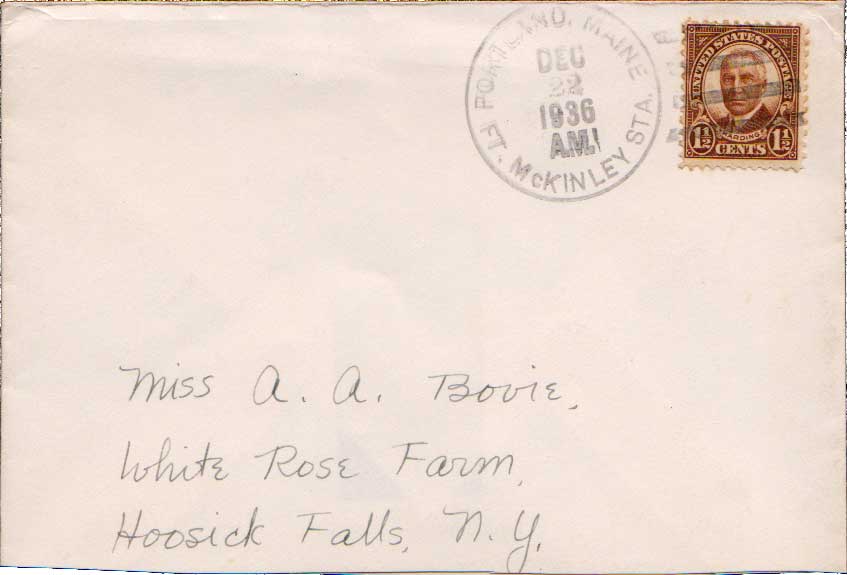 PORTLAND, MAINE
DEC
22
1936
A.M.
FT. McKINLEY STA.
UNITED STATES POSTAGE
HARDING
1½ CENTS 1½
Miss A. A. Bovie,
White Rose Farm,
Hoosick Falls, N.Y.